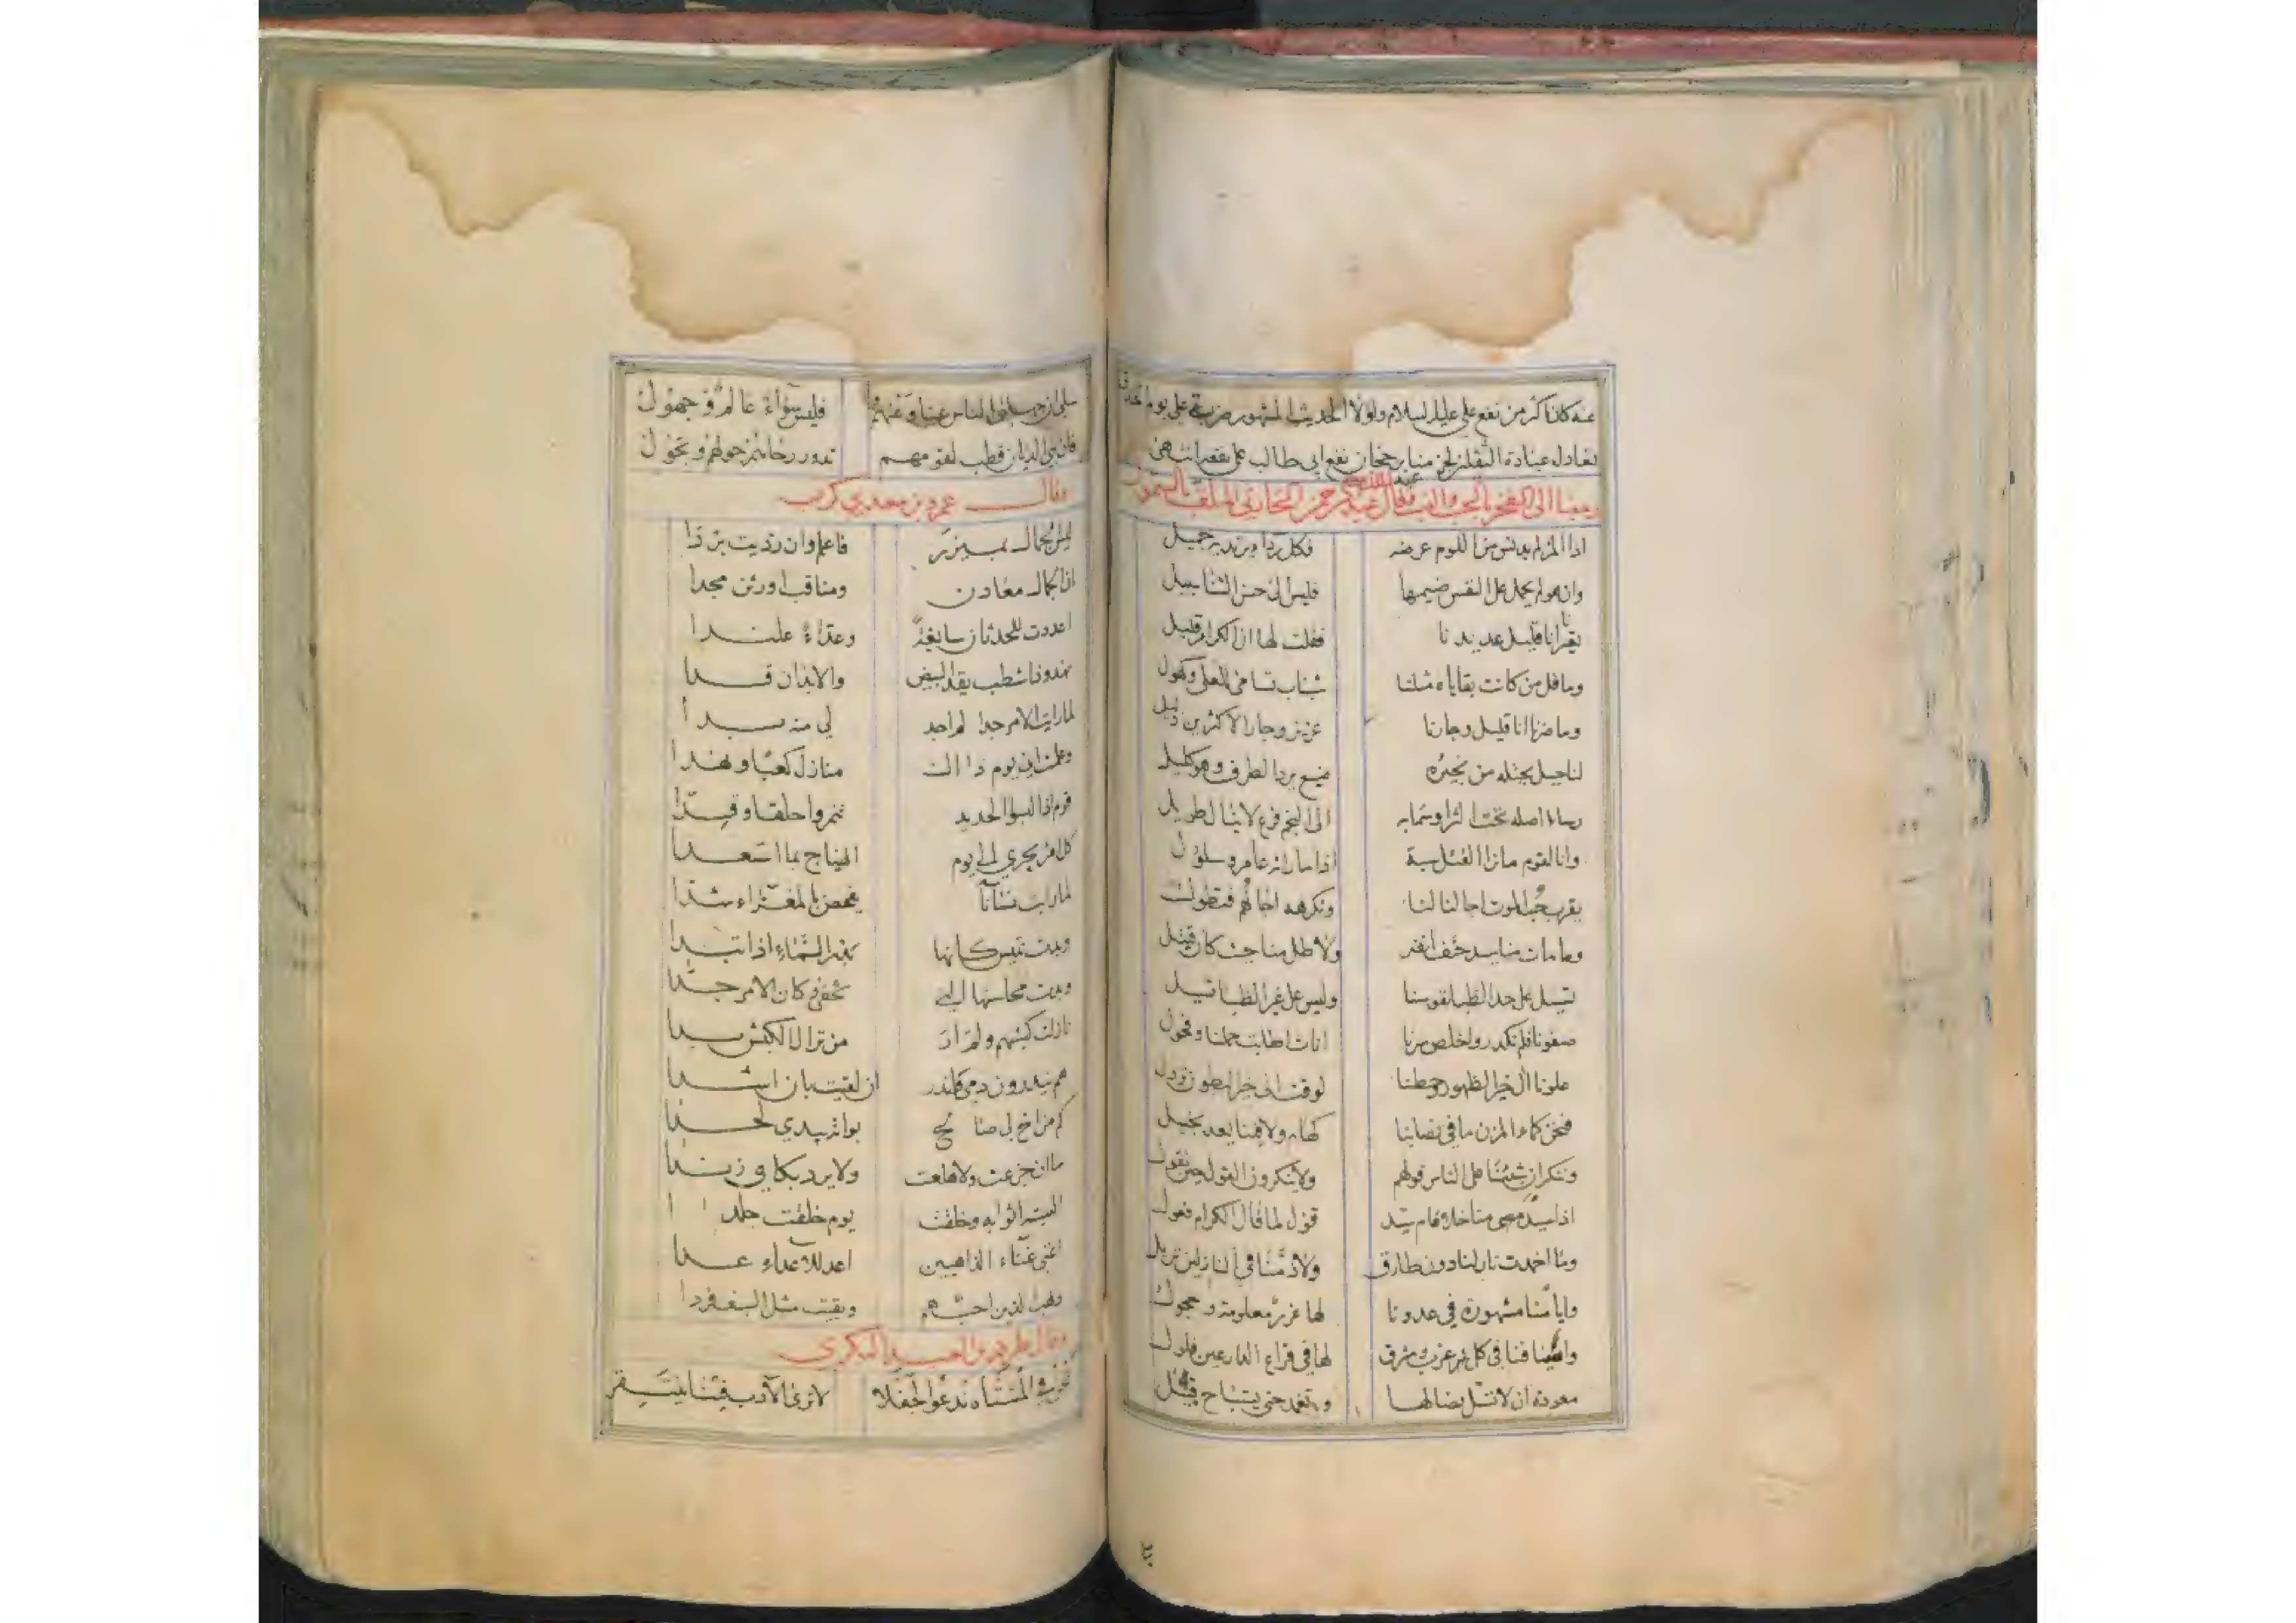 عنه كان اكثر من نفع علي عليه السلام ولولا الحديث المشهور ضربة علي يوم الخندق
تعادل عبادة الثقلين لجزمنا برجحان نفع ابي طالب على نفعه انتهى
رجعنا الى الفخر بالحسب والنسب قال عبد الملك بن عبد الرحمن الحارثي الملقب بالسموئل
اذا المرء لم يدنس من اللوم عرضه فكل رداء يرتديه جميل
وان هو لم يحمل على النفس ضيمها فليس الى حسن الثنا سبيل
تعيرنا انا قليل عديدنا فقلت لها ان الكرام قليل
وما قل من كانت بقاياه مثلنا شباب تسامى للعلى وكهول
وما ضرنا انا قليل وجارنا عزيز وجار الاكثرين ذليل
لنا جبل يحتله من نجيره منيع يرد الطرف وهو كليل
رسا اصله تحت الثرا وسما به الى النجم فرع لا ينال طويل
وانا لقوم ما نرا القتل سبة اذا ما راته عامر وسلول
يقرب حب الموت اجالنا لنا وتكرهه اجالهم فتطول
وما مات منا سيد حتف انفه ولا طل منا حيث كان قتيل
تسيل على حد الظبا نفوسنا وليس على غير الظبا تسيل
صفونا فلم نكدر واخلص سرنا اناث اطابت حملنا وفحول
علونا الى خير الظهور وحطنا لوقت الى خير البطون نزول
فنحن كماء المزن ما في نصابنا كهام ولا فينا يعد بخيل
وننكر ان شئنا على الناس قولهم ولا ينكرون القول حين نقول
اذا سيد منا خلا قام سيد قؤل لما قال الكرام فعول
وما اخمدت نار لنا دون طارق ولا ذمنا في النازلين نزيل
وايامنا مشهورة في عدونا لها غرر معلومة وحجول
واسيافنا في كل غرب ومشرق لها في قراع الدارعين فلول
معودة ان لا تسل نصالها وتغمد حتى يستباح قبيل
سلي ان جهلت الناس عنا وعنهم فليس سواء عالم وجهول
فان بني الديان قطب لقومهم تدور رحاهم حولهم وتحول
وقال عمرو بن معدي كرب
ليس الجمال بميزر فاعلم وان رديت بردا
ان الجمال معادن ومناقب اورثن مجدا
اعددت للحدثان سابغة وعداء علندا
نهدا وذا شطب يقد البيض والابدان قدا
لما رايت الامر جدا لم اجد لي منه بدا
وعلمت اني يوم ذاك منازل كعبا ونهدا
قوم اذا لبسوا الحديد تنمروا حلقا وقدا
كل امرء يجري الى يوم الهياج بما استعدا
لما رايت نساءنا يفحصن بالمعزاء شدا
وبدت لميس كانها بدر السماء اذا تبدا
وبدت محاسنها التي تخفى وكان الامر جدا
نازلت كبشهم ولم ار من نزال الكبش بدا
هم ينذرون دمي وانذر ان لقيت بان اشدا
كم من اخ لي صالح بواته بيدي لحدا
ما ان جزعت ولا هلعت ولا يرد بكاي زندا
البسته اثوابه وخلقت يوم خلقت جلدا
اغني غناء الذاهبين اعد للاعداء عدا
ذهب الذين احبهم وبقيت مثل السيف فردا
وقال طرفة بن العبد البكري
نحن في المشتاة ندعوا الجفلا لا ترى الآدب فينا ينتقر